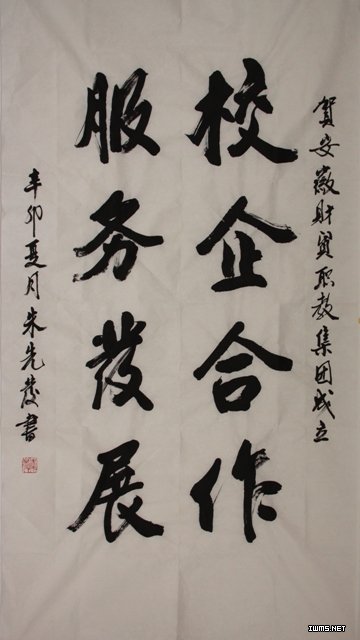 贺安徽财贸职教集团成立
校企合作
服务發展
辛卯夏月朱先發書
IWMS.NET